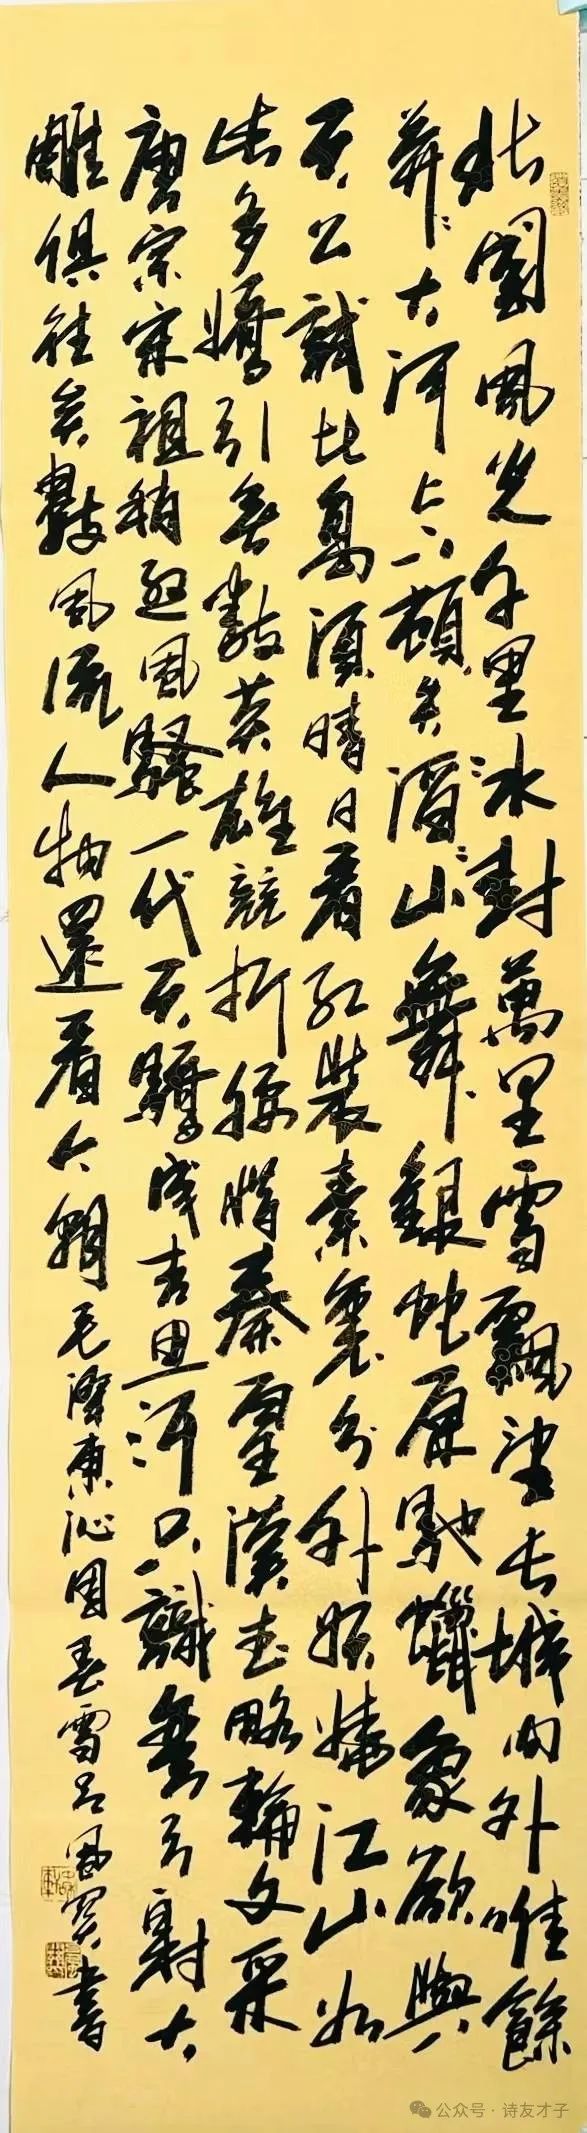 北國風光千里冰封萬里雪飄望長城內外唯餘
莽〻大河上下頓失滔〻山舞銀蛇原馳蠟象欲與
天公試比高須晴日看紅裝素裹分外妖嬈江山如
此多嬌引無數英雄競折腰惜秦皇漢武略輸文采
唐宗宋祖稍遜風騷一代天驕成吉思汗只識彎弓射大
雕俱往矣數風流人物還看今朝毛澤東沁園春雪呂書
公众号 · 诗友才子